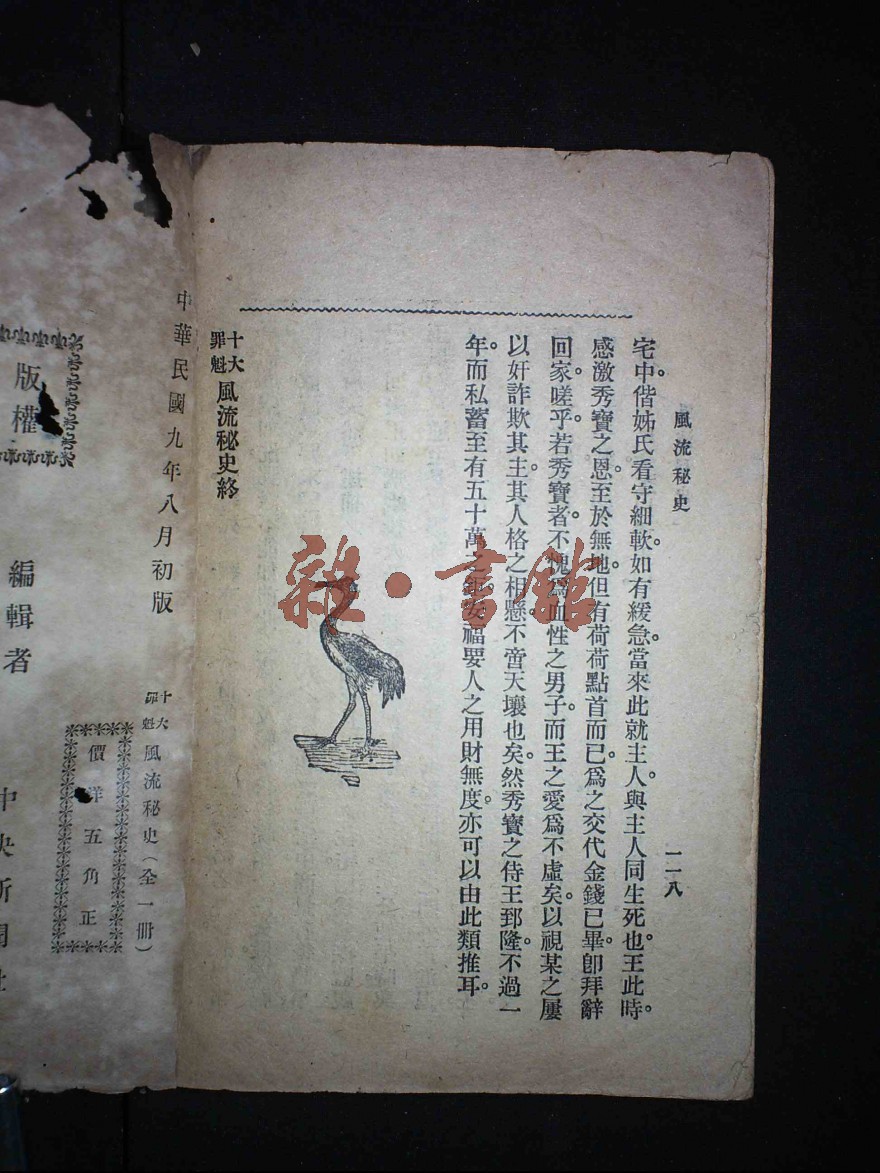 風流秘史
一一八
宅中。偕姊氏看守細軟。如有緩急。當來此就主人。與主人同生死也。王此時。
感激秀寶之恩。至於無地。但有荷荷點首而已。爲之交代金錢已畢。卽拜辭
回家。嗟乎。若秀寶者。不愧爲血性之男子。而王之愛爲不虛矣。以視某之屢
以奸詐欺其主。其人格之相懸不啻天壤也矣。然秀寶之侍王郅隆。不過一
年。而私蓄至有五十萬之鉅。安福要人之用財無度。亦可以由此類推耳。
十大罪魁風流秘史終
雜·書館
中華民國九年八月初版
十大罪魁風流秘史(全一冊)
價洋五角正
版權
編輯者
中央新聞社